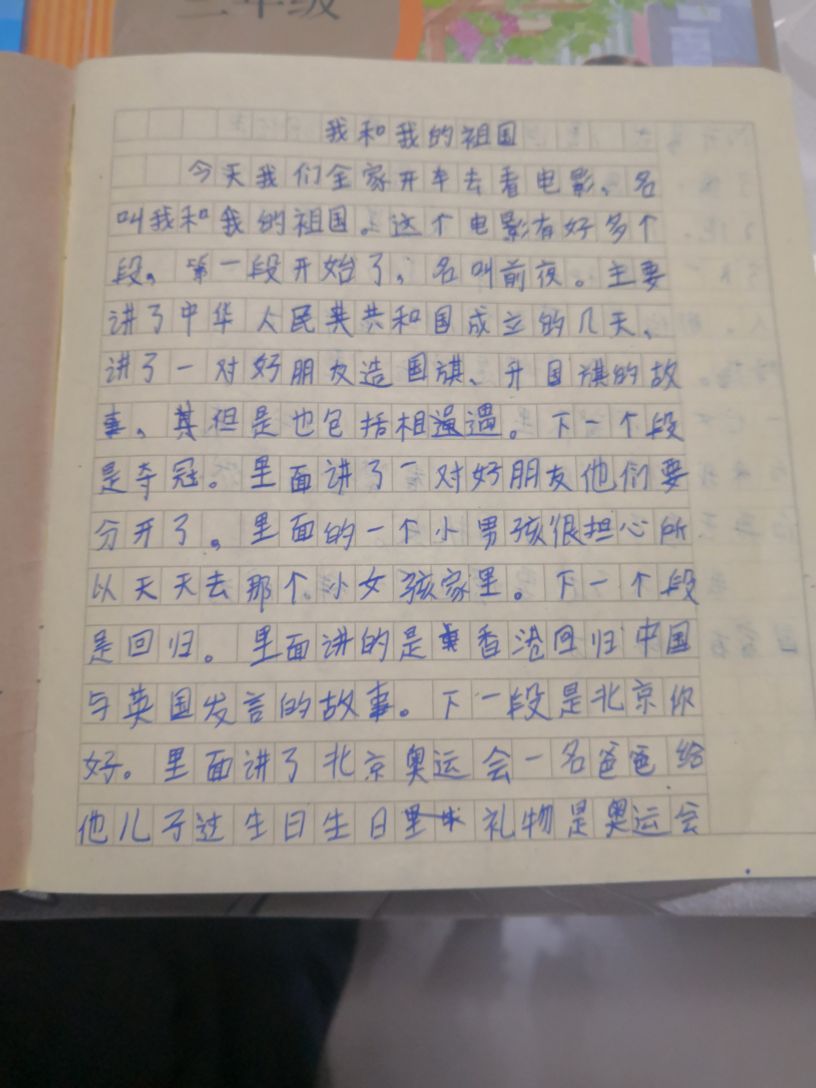 三年级
我和我的祖国
今天我们全家开车去看电影、名
叫我和我的祖国。这个电影有好多个
段、第一段开始了,名叫前夜。主要
讲了中华人民共和国成立的几天、
讲了一对好朋友造国旗、升国旗的故
事、但是也包括相遇。下一个段
是夺冠。里面讲了一对好朋友他们要
分开了。里面的一个小男孩很担心所
以天天去那个小女孩家里。下一个段
是回归。里面讲的是香港回归中国
与英国发言的故事。下一段是北京你
好。里面讲了北京奥运会一名爸爸给
他儿子过生日生日礼物是奥运会